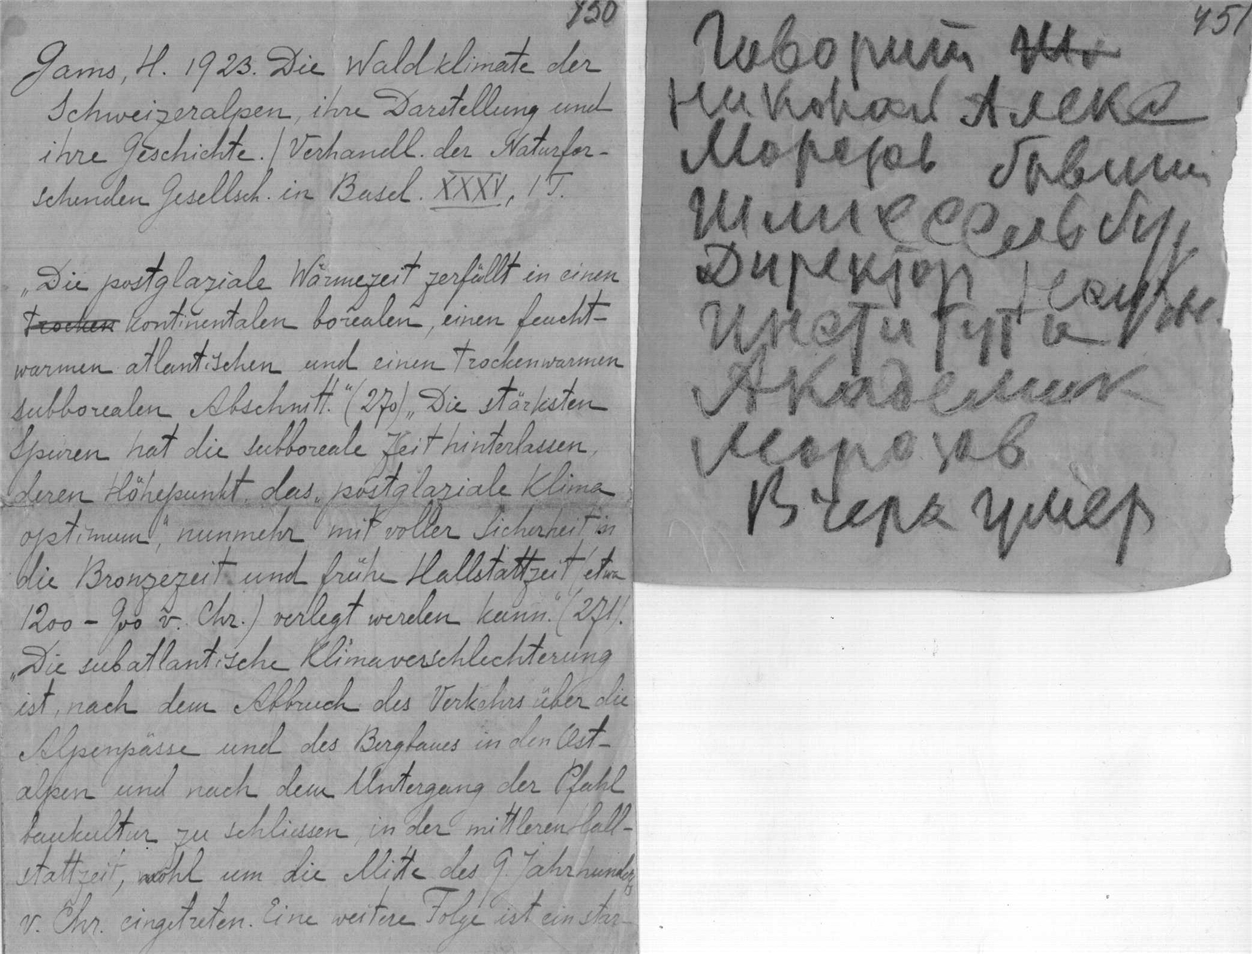 450
Gams, H. 1923. Die Waldklimate der
Schweizeralpen, ihre Darstellung und
ihre Geschichte. / Verhandl. der Naturfor-
schenden Gesellsch. in Basel. XXXV, 1 T.
„Die postglaziale Wärmezeit zerfällt in einen
trocken kontinentalen borealen, einen feucht-
warmen atlantischen und einen trockenwarmen
subborealen Abschnitt.“ (270) „Die stärksten
Spuren hat die subboreale Zeit hinterlassen,
deren Höhepunkt, das „postglaziale Klima
optimum“, nunmehr mit voller Sicherheit in
die Bronzezeit und frühe Hallstattzeit (etwa
1200 – 900 v. Chr.) verlegt werden kann.“ (271).
„Die subatlantische Klimaverschlechterung
ist, nach dem Abbruch des Verkehrs über die
Alpenpässe und des Bergbaues in den Ost-
alpen und nach dem Untergang der Pfahl
baukultur zu schliessen, in der mittleren Hall-
stattzeit, wohl um die Mitte des 9. Jahrhunderts
v. Chr. eingetreten. Eine weitere Folge ist ein star-
451
Говорит
Николай Алекс
Морозов бывший
Шлиссельбур
Директор Научн.
Института
Академик
Морозов
Вчера умер